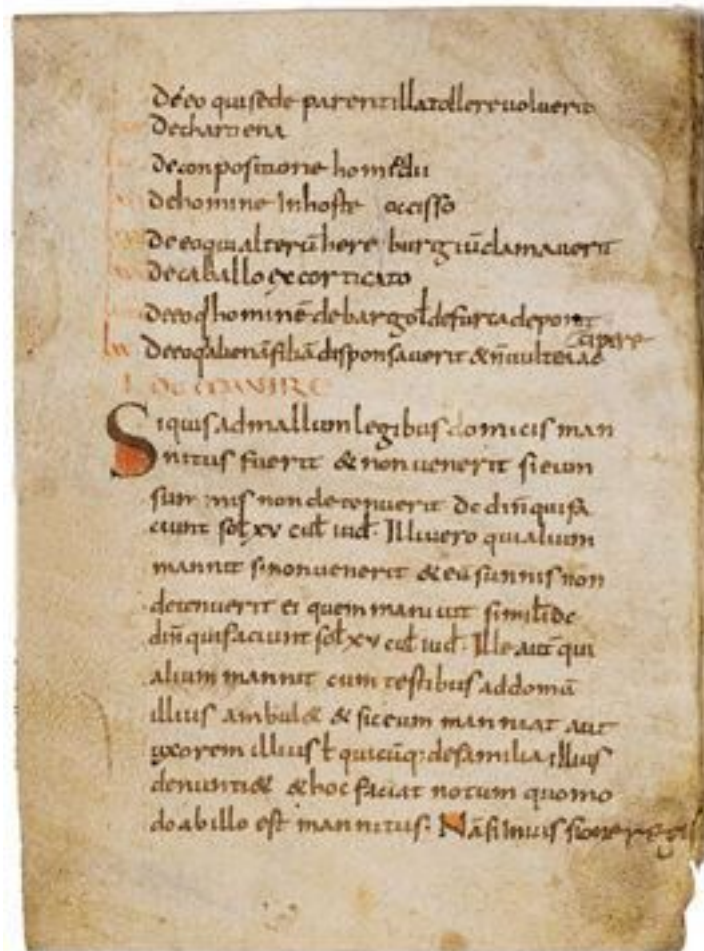 De eo qui se de parentilla tollere voluerit
De charrena
De conpositione homędii
De homine In hoste occisso
De eo qui alterū here burgiū clamaverit
De caballo excorticato
De eo q̄ hominē de bargo ł de furca
De eo q̄ alienā filiā disponsaverit & ñ vult eā ac
cipere
I DE MANNIRE
Si quis ad mallum legibus domicis man
nitus fuerit & non venerit si eum
sunnis non detenuerit de din̄ qui fa
ciunt sol xv cul iud. Ille vero qui alium
mannit si non venerit & eū sunnis non
detenuerit ei quem manivit simil de
din̄ qui faciunt sol xv cul iud. Ille aut̄ qui
alium mannit cum testibus ad domū
illius ambul& & sic eum manniat aut
uxorem illius ł quicūq; de familia illius
denunti& & hoc faciat notum quomo
do ab illo est mannitus. Nā si In iussione regis